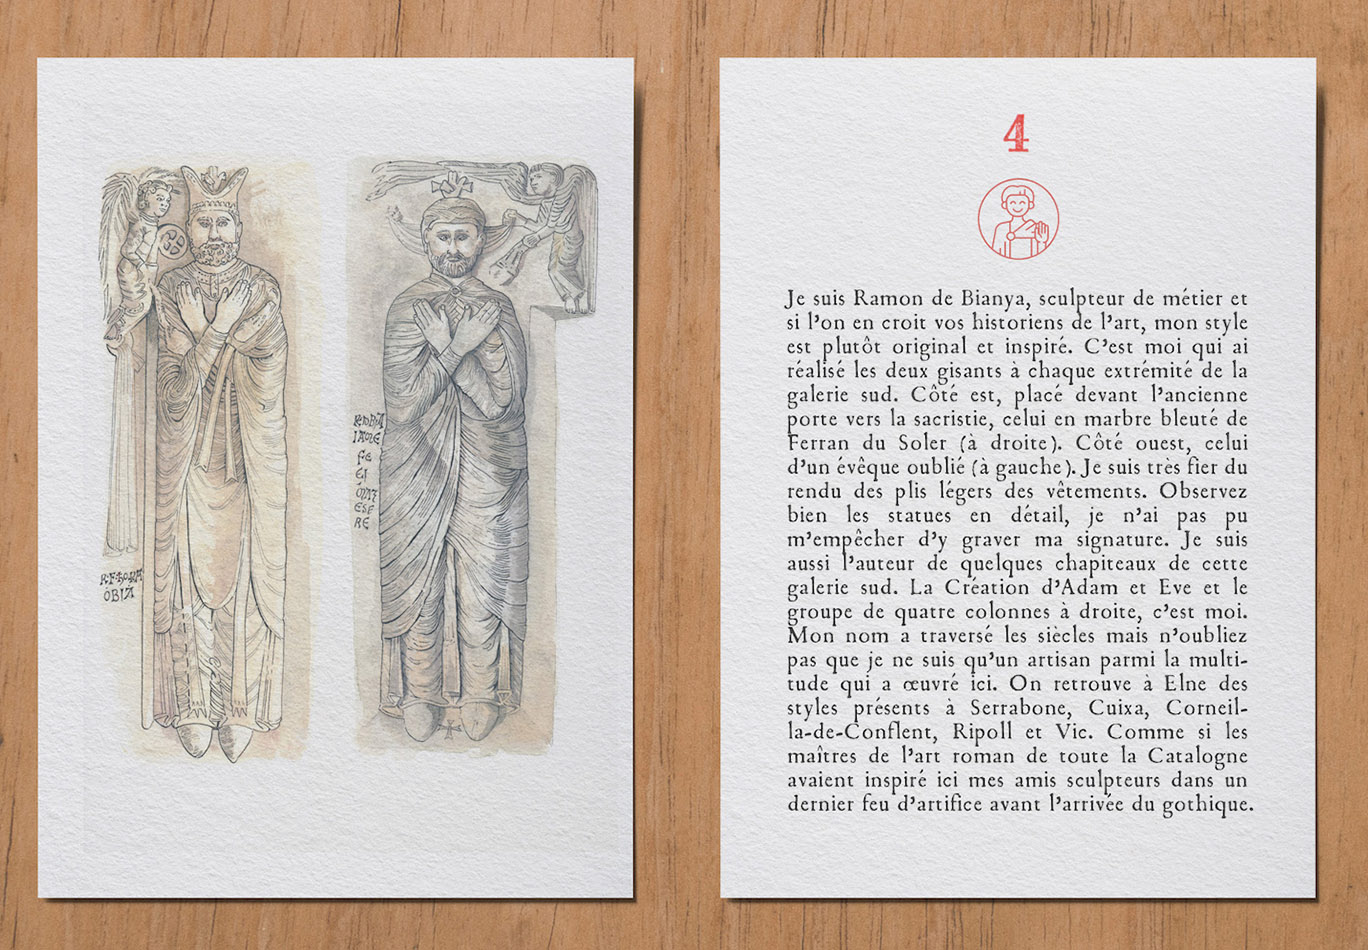 4
Je suis Ramon de Bianya, sculpteur de métier et
si l’on en croit vos historiens de l’art, mon style
est plutôt original et inspiré. C’est moi qui ai
réalisé les deux gisants à chaque extrémité de la
galerie sud. Côté est, placé devant l’ancienne
porte vers la sacristie, celui en marbre bleuté de
Ferran du Soler (à droite). Côté ouest, celui
d’un évêque oublié (à gauche). Je suis très fier du
rendu des plis légers des vêtements. Observez
bien les statues en détail, je n’ai pas pu
m’empêcher d’y graver ma signature. Je suis
aussi l’auteur de quelques chapiteaux de cette
galerie sud. La Création d’Adam et Eve et le
groupe de quatre colonnes à droite, c’est moi.
Mon nom a traversé les siècles mais n’oubliez
pas que je ne suis qu’un artisan parmi la multi-
tude qui a œuvré ici. On retrouve à Elne des
styles présents à Serrabone, Cuixa, Corneil-
la-de-Conflent, Ripoll et Vic. Comme si les
maîtres de l’art roman de toute la Catalogne
avaient inspiré ici mes amis sculpteurs dans un
dernier feu d’artifice avant l’arrivée du gothique.